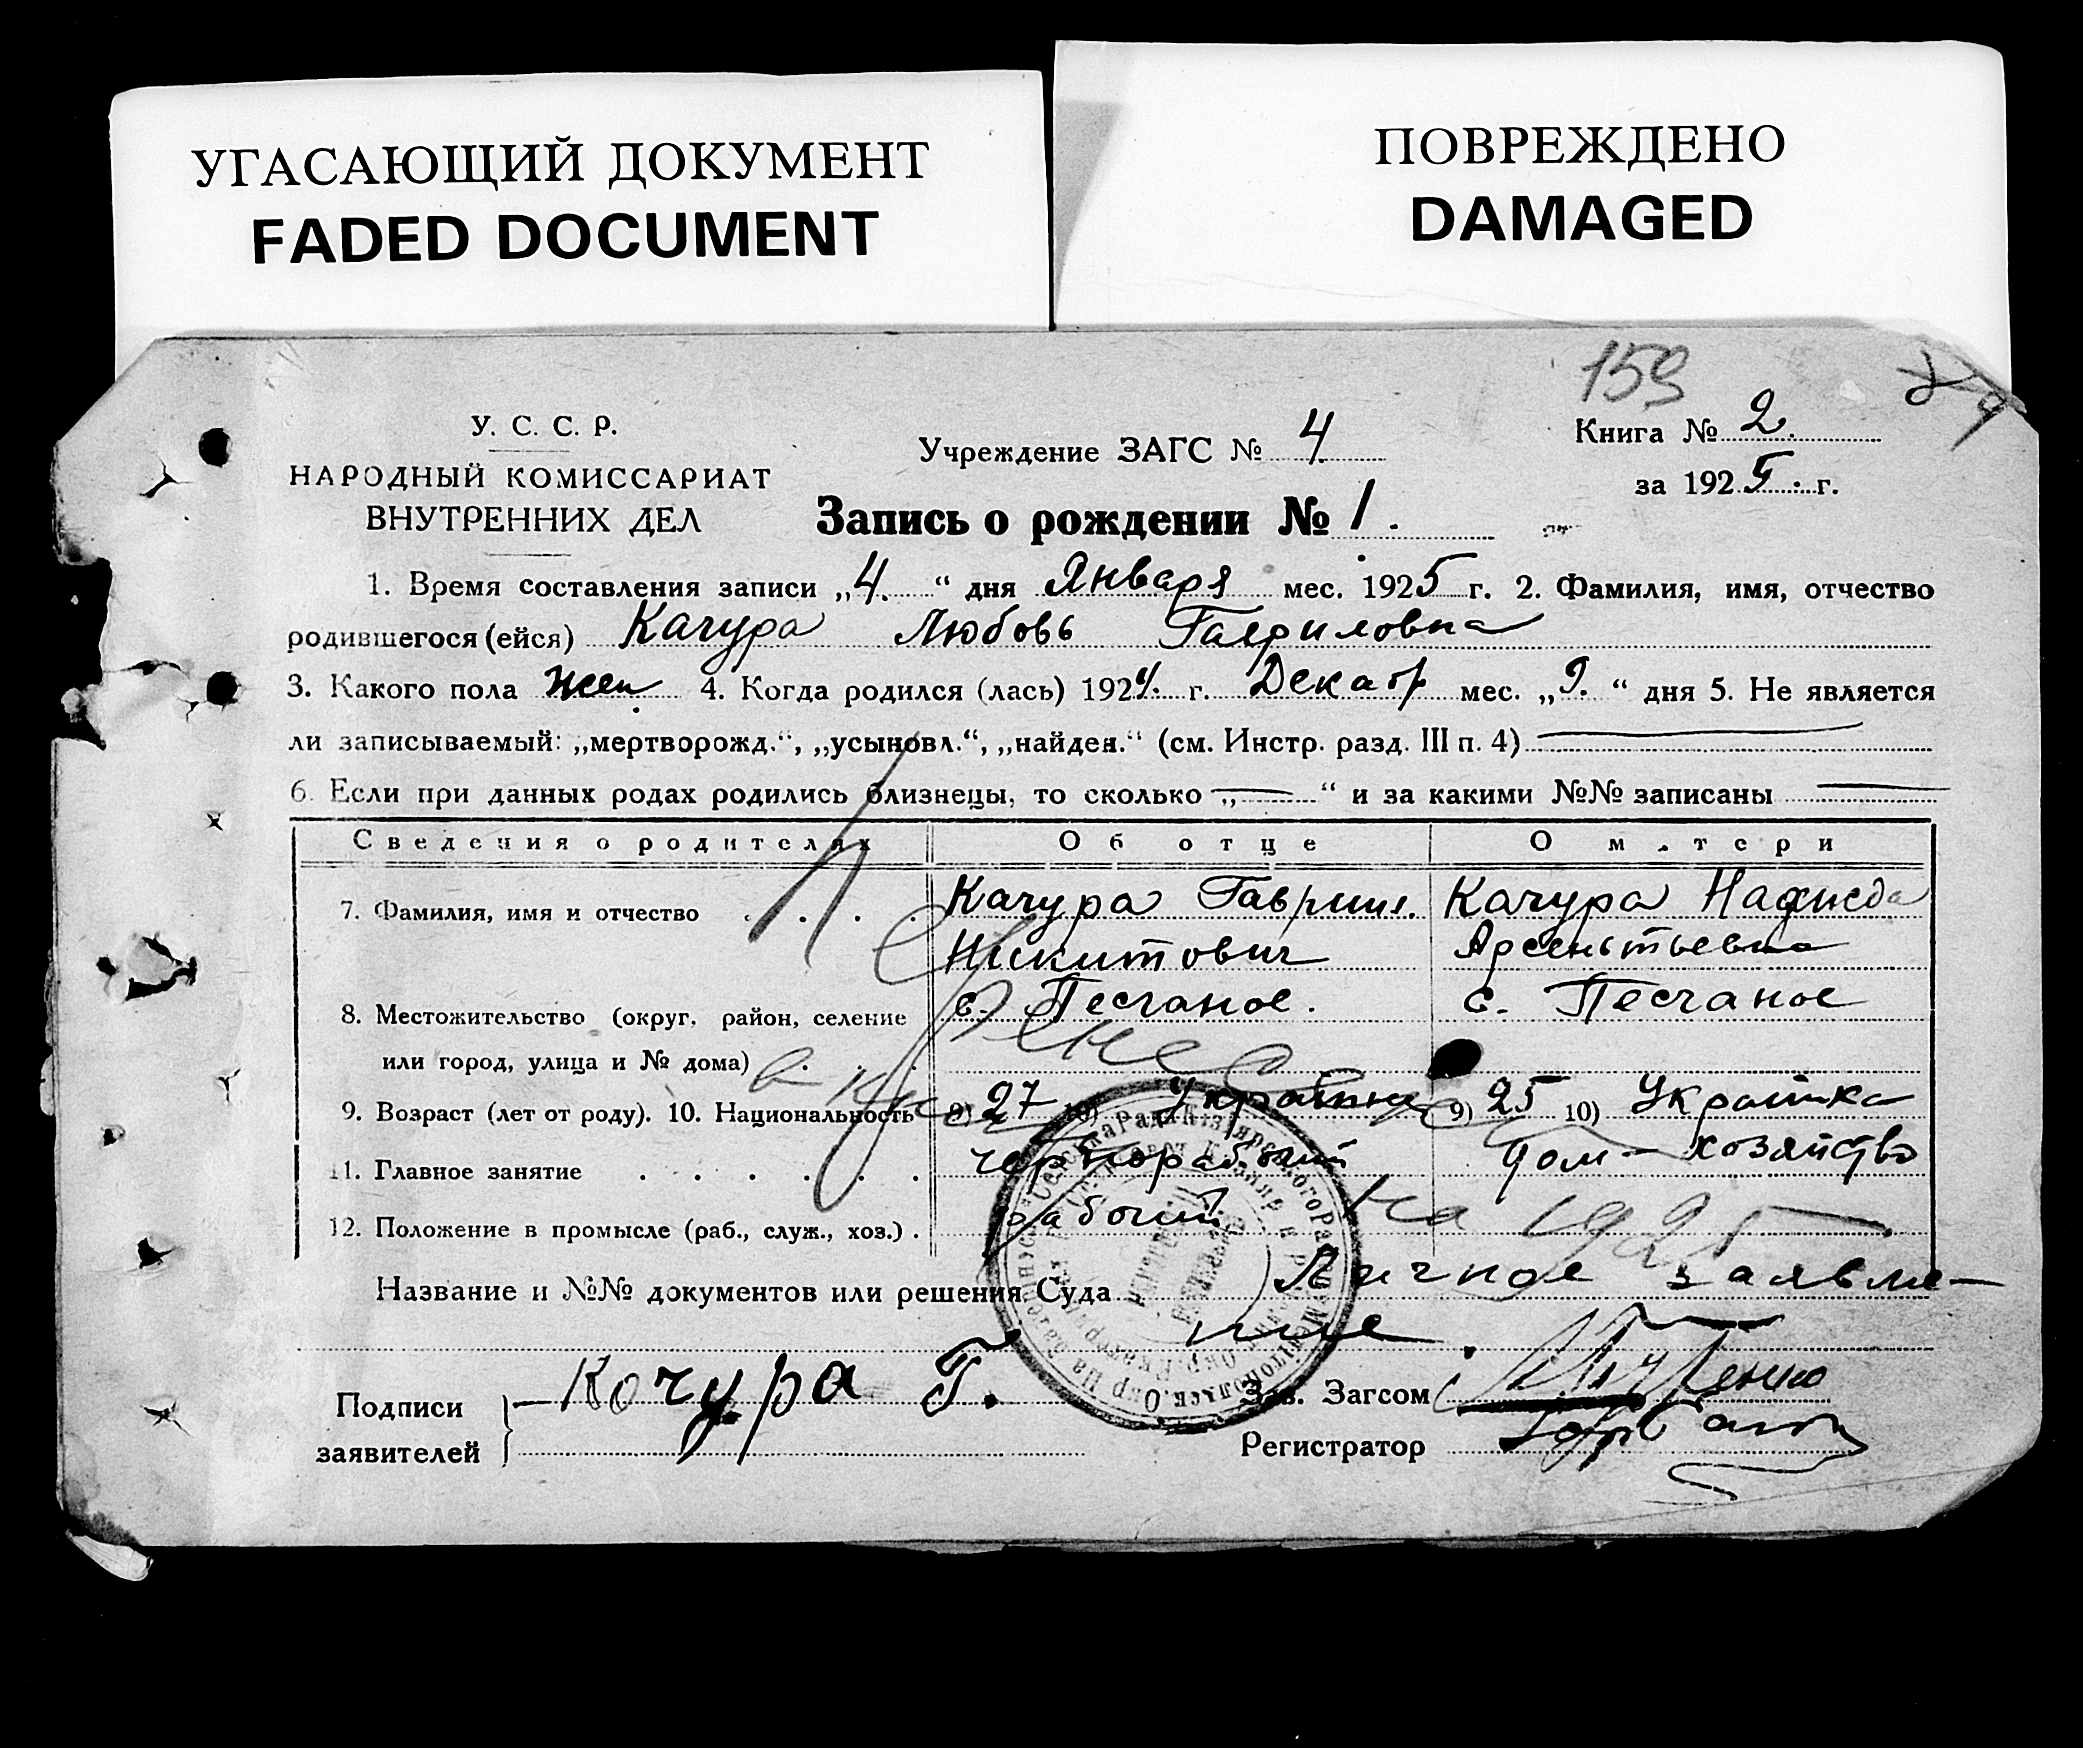 УГАСАЮЩИЙ ДОКУМЕНТ
FADED DOCUMENT
ПОВРЕЖДЕНО
DAMAGED
159
У. С. С. Р.
НАРОДНЫЙ КОМИССАРИАТ
ВНУТРЕННИХ ДЕЛ
Учреждение ЗАГС № 4
Книга № 2.
за 1925 г.
Запись о рождении № 1.
1. Время составления записи „4.“ дня Января мес. 1925 г. 2. Фамилия, имя, отчество
родившегося (ейся) Качура Любовь Гавриловна
3. Какого пола жен 4. Когда родился (лась) 1924. г. Декабр мес. „9.“ дня 5. Не является
ли записываемый: „мертворожд.“, „усыновл.“, „найден.“ (см. Инстр. разд. III п. 4)
6. Если при данных родах родились близнецы, то сколько „—“ и за какими №№ записаны —
Сведения о родителях Об отце О м.тери
7. Фамилия, имя и отчество . . . . Качура Гавриил. Качура Надежда
Никитович Арсентьевна
8. Местожительство (округ, район, селение с. Песчаное. с. Песчаное
или город, улица и № дома) . . .
9. Возраст (лет от роду). 10. Национальность 9) 27 10) Украинец 9) 25 10) Украинка
11. Главное занятие . . . . . . чернорабочий Дом-хозяйство
12. Положение в промысле (раб., служ., хоз.) . рабочий
на 1925
Название и №№ документов или решения Суда Личное заявле-
ние.
Подписи
заявителей
Кочура Г.
Зав. Загсом
Регистратор